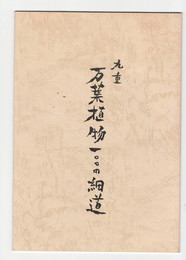 九重
万葉植物一〇〇の細道